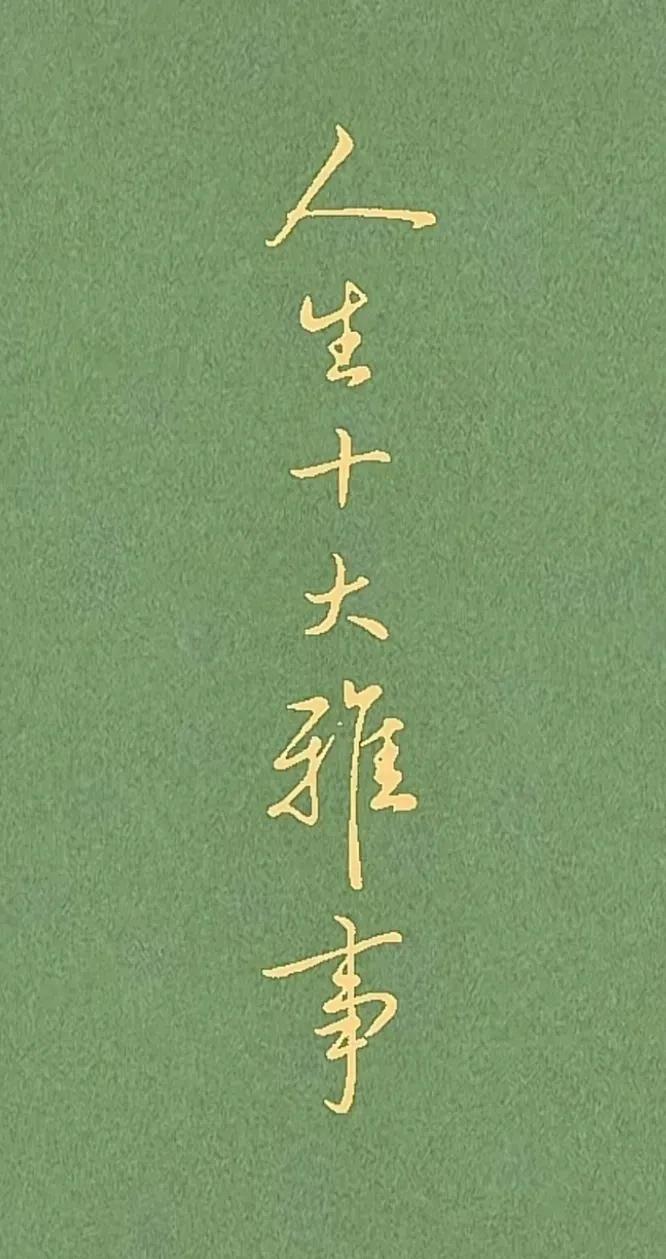 人生十大雅事